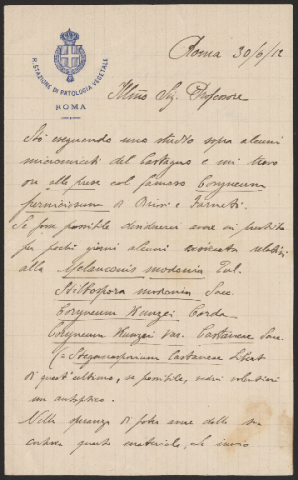 R. STAZIONE DI PATOLOGIA VEGETALE
ROMA
Roma 30/6/12
Illmo Sig. Professore
Sto eseguendo uno studio sopra alcuni
micromiceti del Castagno e mi trovo
ora alle prese col famoso Coryneum
perniciosum di Briosi e Farneti.
Se fosse possibile desidererei avere in prestito
per pochi giorni alcuni exsiccata relativi
alla Melanconis modonia Tul.
Stilbospora modonia Sacc.
Coryneum Kunzei Corda
Coryneum Kunzei var. Castaneae Sacc.
(= Steganosporium Castaneae Libert
di quest'ultimo, se possibile, vedrei volentieri
un autoptico.
Nella speranza di poter avere dalla sua
cortesia questo materiale, Le invio